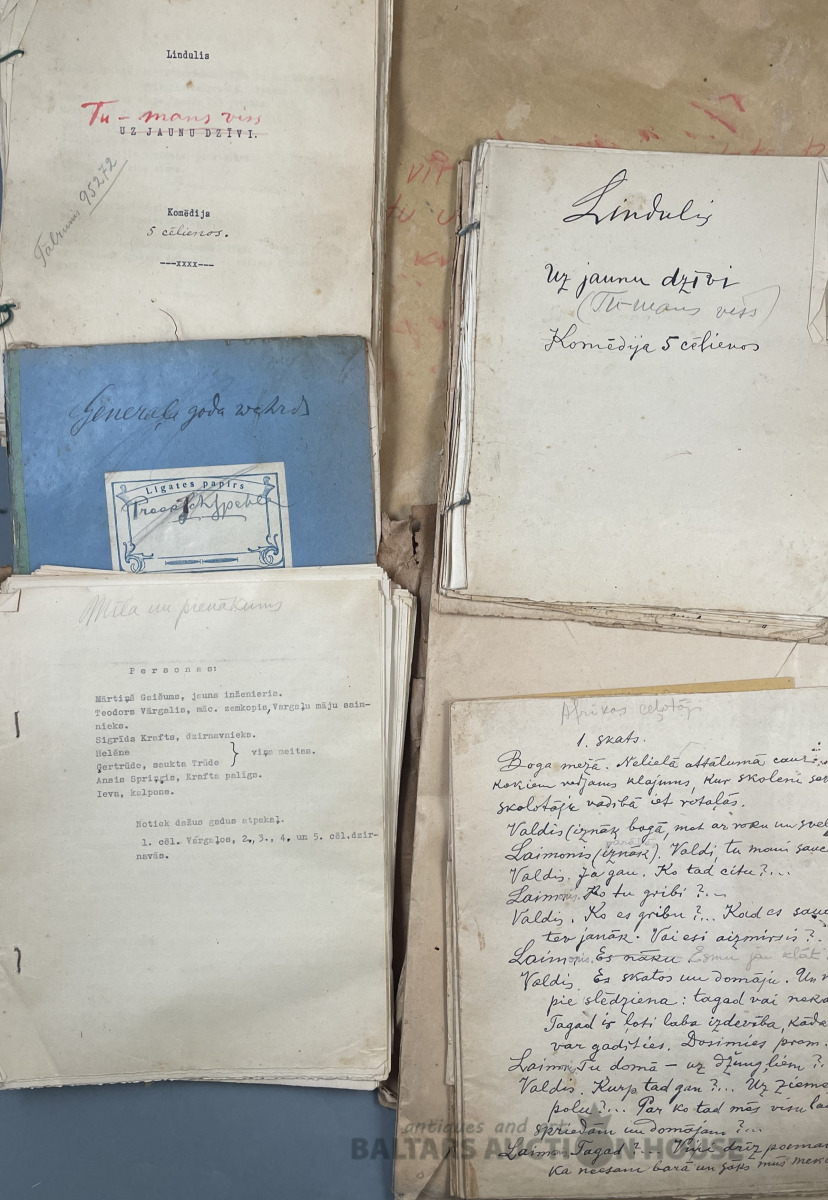 Lindulis
Tu - mans viss
UZ JAUNU DZĪVI.
95272
Komēdija
5 cēlienos.
---xxxx---
Lindulis
Uz jaunu dzīvi
(Tu-mans viss)
Komēdija 5 cēlienos
Ģeneraļa goda wahrds
Līgates papīrs
Mīla un pienākums
Personas:
Mārtiņš Gaiņums, jauns inženieris.
Teodors Vārgalis, māc. zemkopis, Vārgaļu māju saim-
nieks.
Sigrīds Krafts, dzirnavnieks.
Helēne
Ģertrūde, saukta Trūde } viņa meitas.
Ansis Spriņģis, Krafta palīgs.
Ieva, kalpone.
Notiek dažus gadus atpakaļ.
1. cēl. Vārgaļos, 2., 3., 4. un 5. cēl. dzir-
navās.
Afrikas ceļotāji
1. skats.
Boga mežā. Nelielā attālumā caur
kokiem redzams klajums, kur skolēni
skolotāja vadībā iet rotaļās.
Valdis (iznāk bogā, met ar roku un
Laimonis (iznāk). Valdi, tu mani
Valdis. Ja gan. Ko tad citu?...
Laimonis. Ko tu gribi?...
Valdis. Ko es gribu?... Kad es
tev jānāk. Vai esi aizmirsis?.
Laimonis. Es nāku Esmu jau klāt
Valdis. Es skatos un domāju. Un
pie slēdziena: tagad vai
Tagad ir ļoti laba izdevība, kāda
var gadīties. Dosimies prom.
Laimon. Tu domā - uz džungļiem?
Valdis. Kurp tad gan?... Uz
polu?... Par ko tad mēs visu
spriedām un domājām?...
Laimon. Tagad?... Viņi drīz
ka neesam barā un sāks mūs
antiques and art
BALTARS AUCTION HOUSE